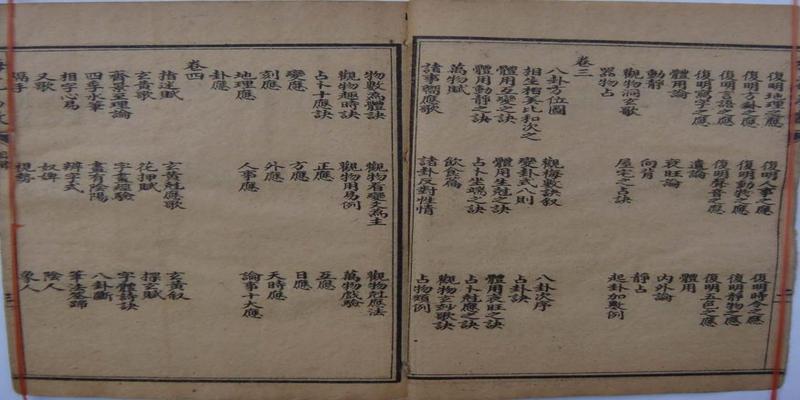 復明地理之應　復明人事之應　復明時令之應
復明方卦之應　復明動物之應　復明靜物之應
復明言語之應　復明聲音之應　復明五色之應
復明寫字之應　遺論　體用
體用論　衰旺論　內外論
動靜　向背　靜占
觀物洞玄歌　屋宅之占訣　起卦加數例
器物占
卷三
八卦方位圖　觀梅數訣叙　八卦次序
相生相尅比和次之　變卦式八則　占卦訣
體用互變之訣　體用生尅之訣　體用衰旺之訣
體用動靜之訣　占卜坐端之訣　占卜尅應之訣
萬物賦　飲食篇　觀物玄妙歌訣
諸事響應歌　諸卦反對性情　占物類例
物數為體訣　觀物看變爻為主　觀物尅應法
觀物趣時訣　觀物用易例　萬物戲驗
占卜十應訣　正應　互應
變應　方應　日應
刻應　外應　天時應
地理應　人事應　論事十大應
卦應
卷四
指迷賦　玄黃尅應歌　玄黃叙
玄黃歌　花押賦　探玄賦
齊景至理論　字畫經驗　字體詩訣
四季水筆　畫有陰陽　八卦斷
相字心易　辨字式　筆法筌蹄
又歌　奴婢　陰人